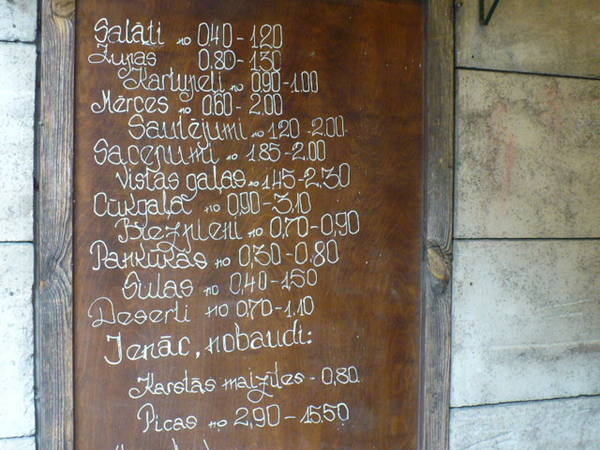 Salāti no 0,40-1,20
Zupas 0,80-1,30
Kartupeļi no 0,90-1.00
Mērces no 0,60-2,00
Sautējumi no 1,20-2,00
Sacepumi no 1,85-2.00
Vistas gaļas no 1,45-2,30
Cūkgaļa no 0,90-3,10
Biezpieni no 0,70-0,90
Pankūkas no 0,30-0,80
Sulas no 0,40-1,50
Deserti no 0,70-1.10
Ienāc, nobaudi:
Karstās maizītes - 0,80
Picas no 2,90-15.50